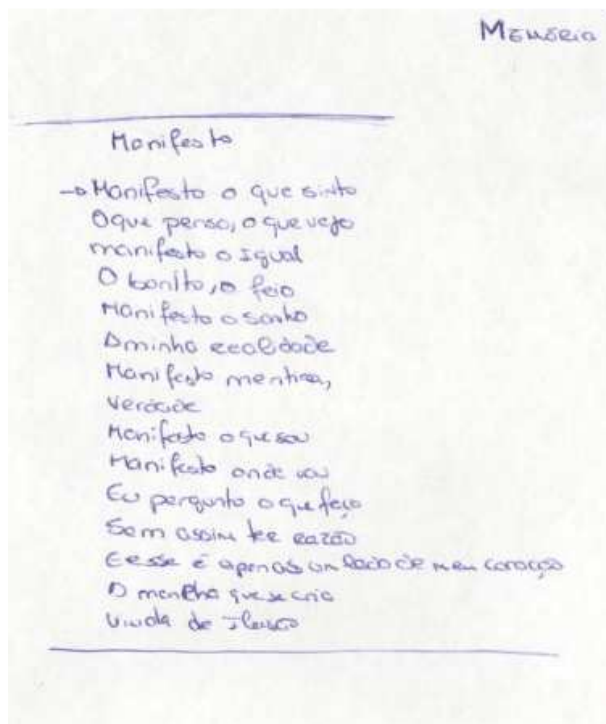 Memória
Manifesto
→ Manifesto o que sinto
O que penso, o que vejo
manifesto o Igual
O bonito, o feio
Manifesto o sonho
A minha realidade
Manifesto mentira,
Verdade
Manifesto o que sou
Manifesto onde vou
Eu pergunto o que faço
Sem assim ter razão
E esse é apenas um lado de meu coração
A que se cria
Vinda de Ilusão